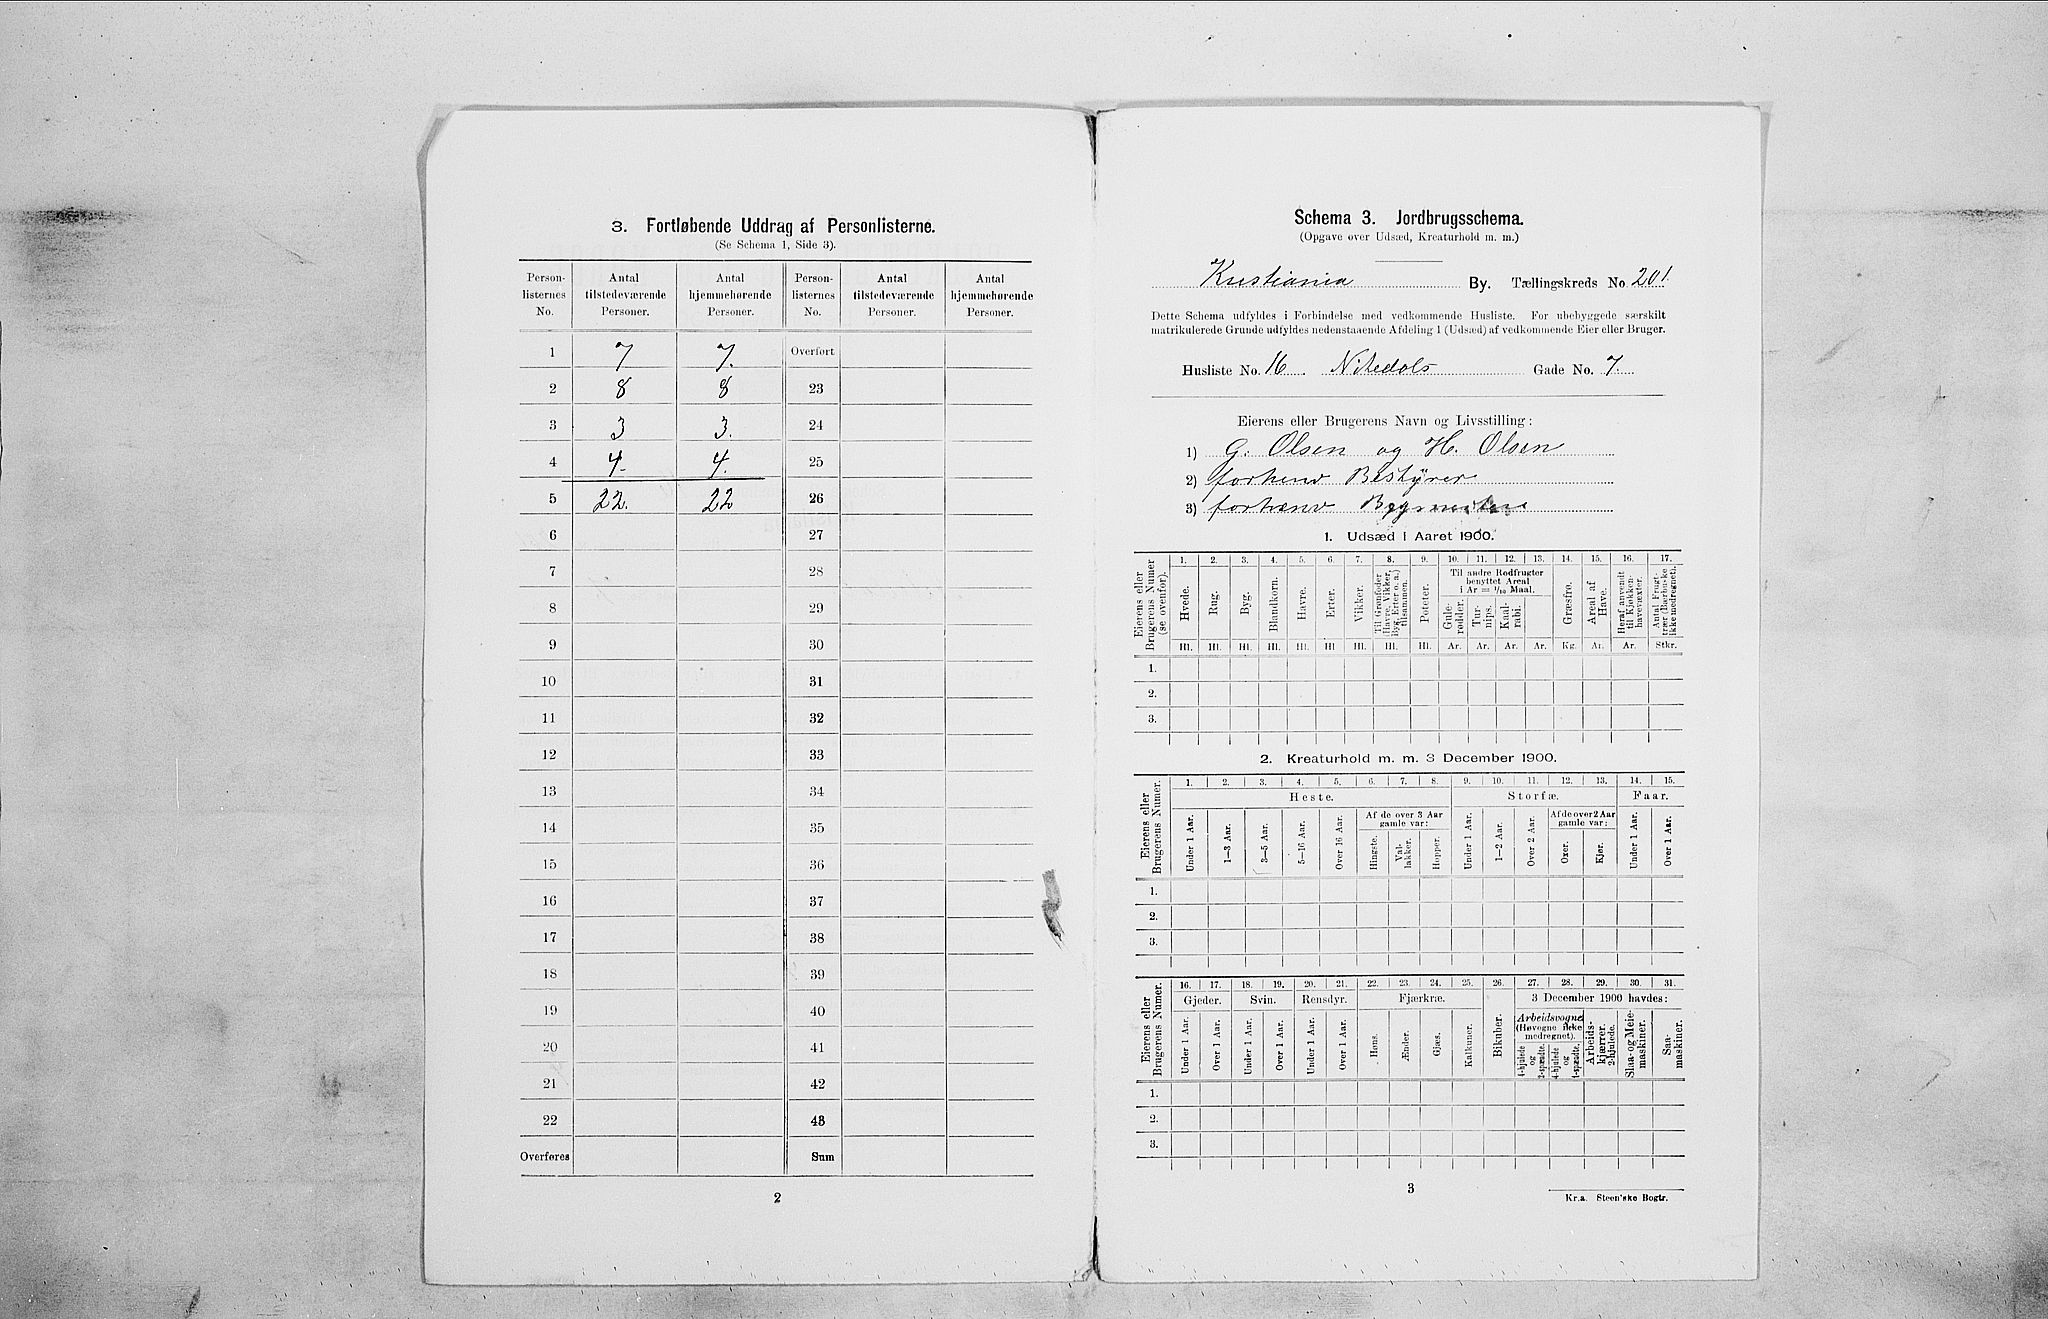 3. Fortløbende Uddrag af Personlisterne.
(Se Schema 1, Side 3).
Person-listernes No. Antal tilstedeværende Personer. Antal hjemmehørende Personer. Person-listernes No. Antal tilstedeværende Personer. Antal hjemmehørende Personer.
1 7 7. Overført
2 8 8 23
3 3 3. 24
4 4. 4. 25
5 22. 22 26
6 27
7 28
8 29
9 30
10 31
11 32
12 33
13 34
14 35
15 36
16 37
17 38
18 39
19 40
20 41
21 42
22 43
Overføres Sum
2
Schema 3. Jordbrugsschema.
(Opgave over Udsæd, Kreaturhold m. m.)
Kristiania By. Tællingskreds No. 201
Dette Schema udfyldes i Forbindelse med vedkommende Husliste. For ubebyggede særskilt
matrikulerede Grunde udfyldes nedenstaaende Afdeling 1 (Udsæd) af vedkommende Eier eller Bruger.
Husliste No. 16 Nitedals Gade No. 7.
Eierens eller Brugerens Navn og Livsstilling:
1) G. Olsen og H. Olsen
2) forhenv Bestyrer
3) forhenv
1. Udsæd i Aaret 1900.
Eierens eller Brugerens Numer (se ovenfor).
1. 2. 3. 4. 5. 6. 7. 8. 9. 10. 11. 12. 13. 14. 15. 16. 17.
Hvede. Rug. Byg. Blandkorn. Havre. Erter. Vikker. Til Grønfoder Havre, Vikker, Byg, Erter o. a.) tilsammen. Poteter.
Til andre Rodfrugter benyttet Areal i Ar = 1/10 Maal.
Gule-rødder. Tur-nips. Kaal-rabi. Græsfrø. Areal af Have. Heraf anvendt til Kjøkken-havevæxter. Antal Frugt-trær (Bærbuske ikke medregnet).
Hl. Hl. Hl. Hl. Hl. Hl Hl. Hl. Hl. Ar. Ar. Ar. Ar. Kg. Ar. Ar. Stkr.
1.
2.
3.
2. Kreaturhold m. m. 3 December 1900.
Eierens eller Brugerens Numer.
1. 2. 3. 4. 5. 6. 7. 8. 9. 10. 11. 12. 13. 14. 15.
Heste. Storfæ. Faar.
Af de over 3 Aar gamle var: Af de over 2 Aar gamle var:
Under 1 Aar. 1–3 Aar. 3–5 Aar. 5–16 Aar. Over 16 Aar. Hingste. Val-lakker. Hopper. Under 1 Aar. 1–2 Aar. Over 2 Aar. Oxer. Kjør. Under 1 Aar. Over 1 Aar.
1.
2.
3.
Eierens eller Brugerens Numer.
16. 17. 18. 19. 20. 21. 22. 23. 24. 25. 26. 27. 28. 29. 30. 31.
Gjeder. Svin. Rensdyr. Fjærkræ. Bikuber. 3 December 1900 havdes:
Under 1 Aar. Over 1 Aar. Under 1 Aar. Over 1 Aar. Under 1 Aar. Over 1 Aar. Høns. Ænder. Gjæs. Kalkuner.
Arbeidsvogne (Høvogne ikke medregnet).
4-hjulede og 2-spædte. 4-hjulede og 1-spædte. Arbeids-kjærrer. 2-hjulede. Slaa- og Meie-maskiner. Saa-maskiner.
1.
2.
3.
3
Kr.a. Steen'ske Bogtr.